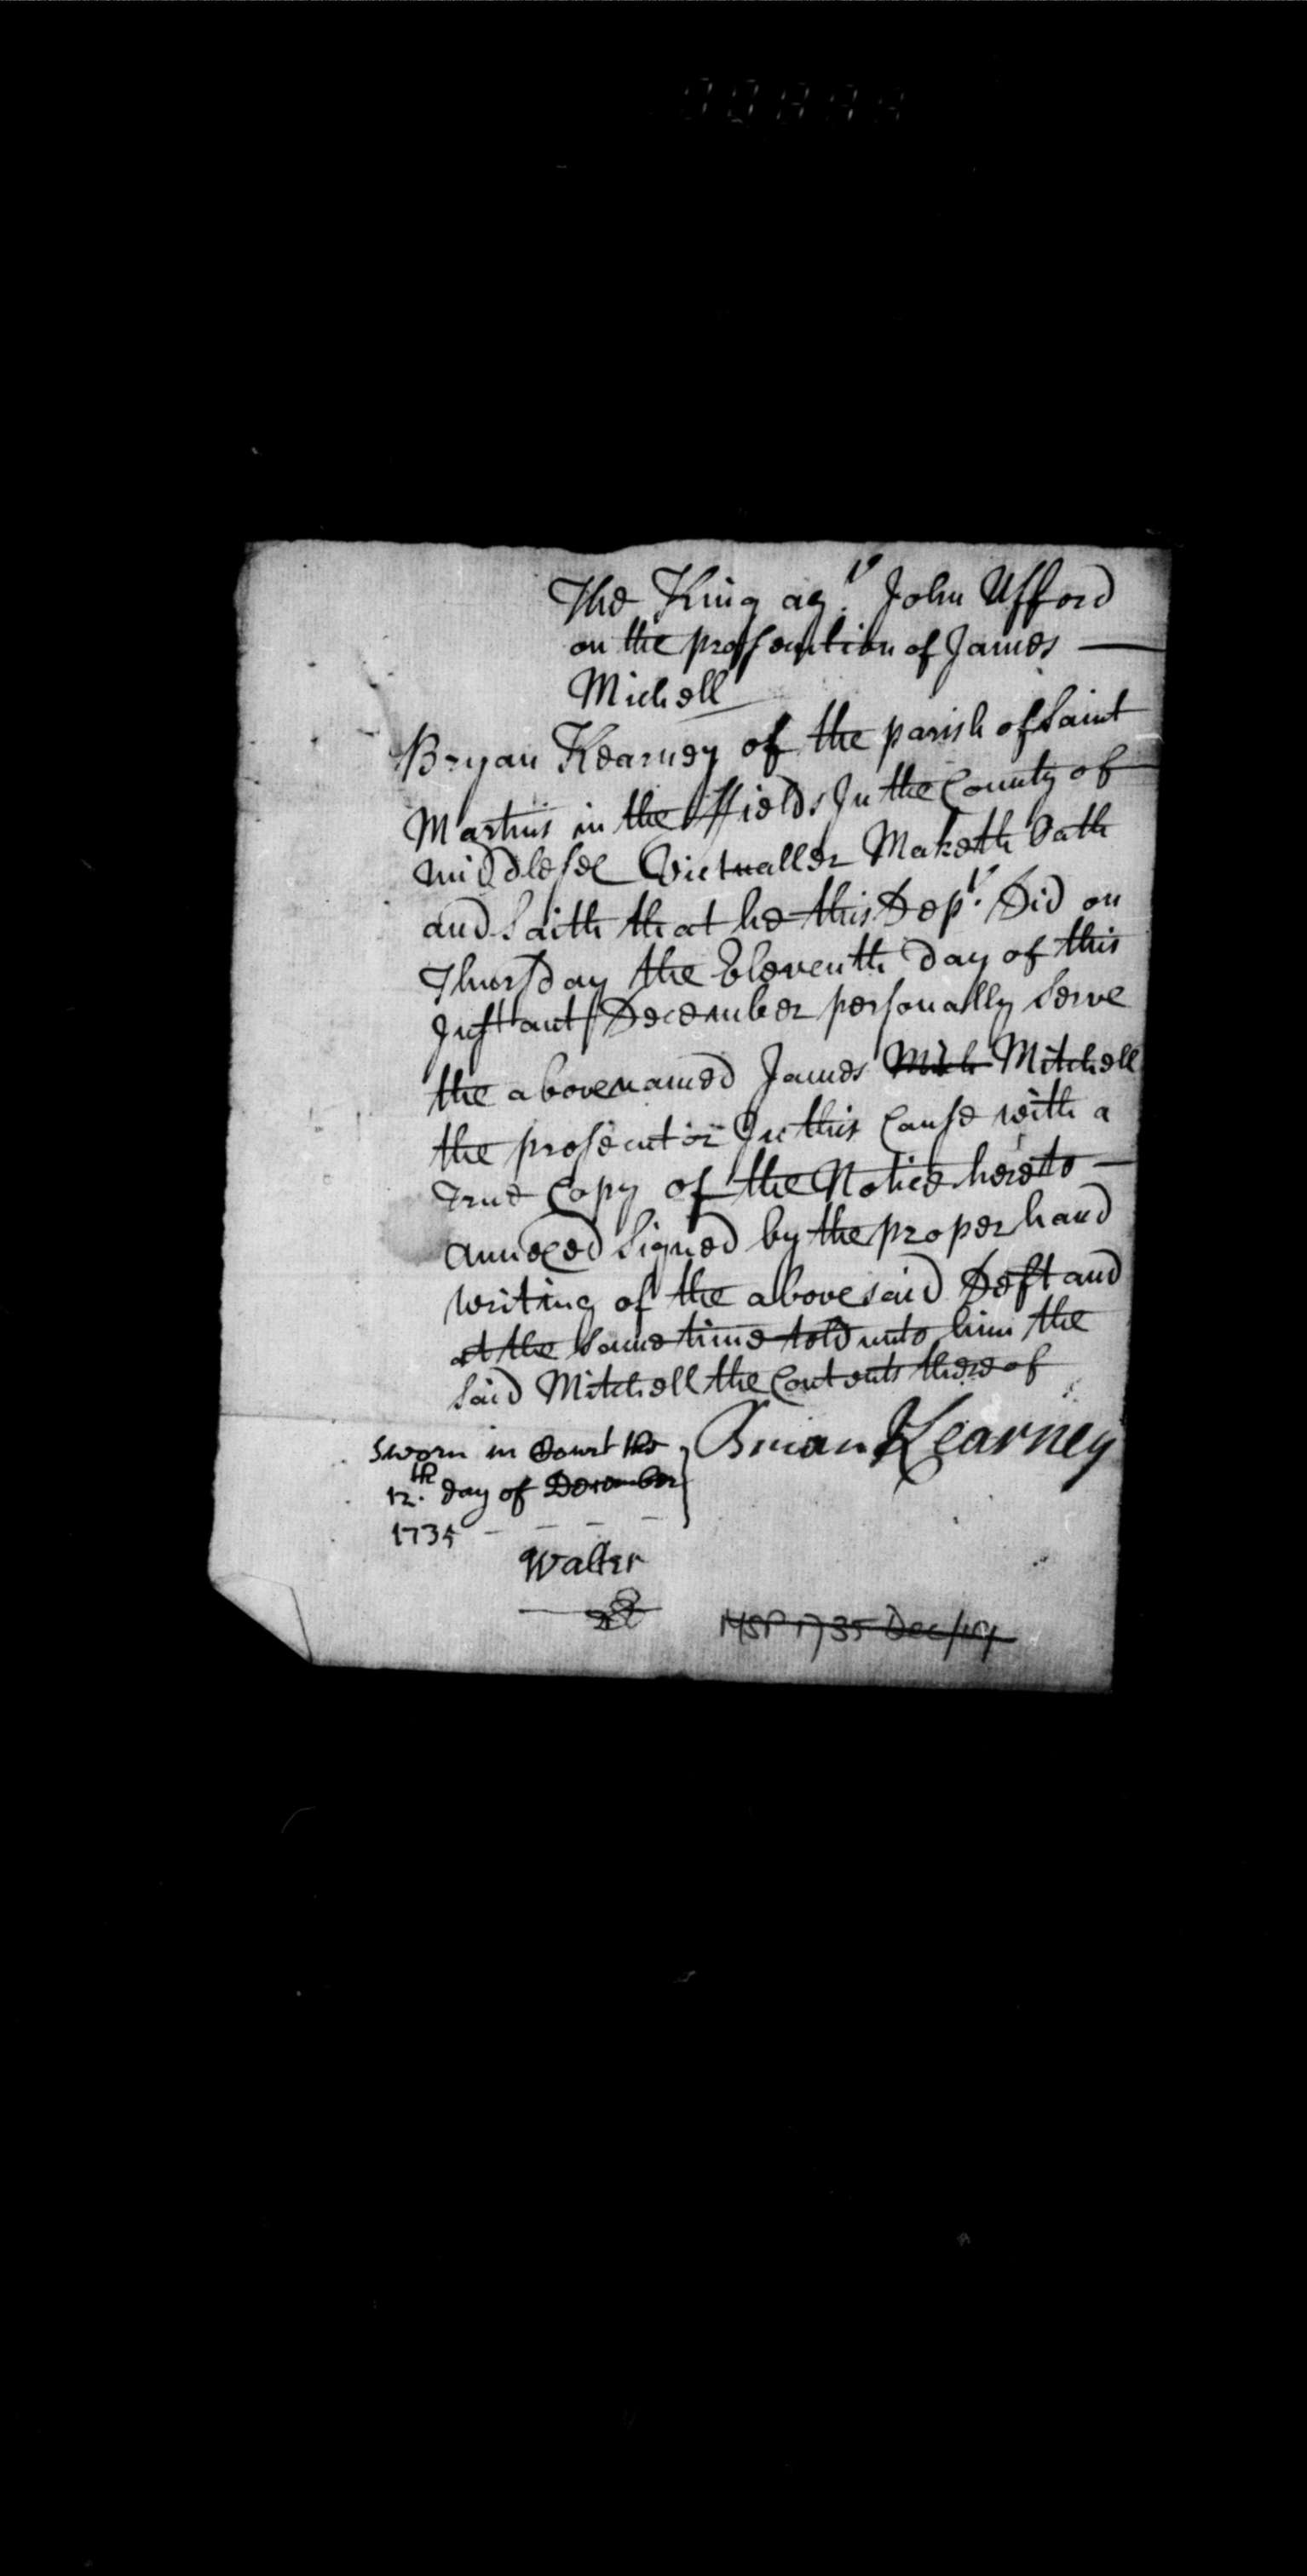 The King agt. John Ufford
on the prossecution of James —
Michell
Bryan Kearney of the parish of Saint
Martins in the ffields In the County of
Middlesex Victualler Maketh Oath
and Saith that he this Dept. Did on
Thursday the Eleventh Day of this
Instant December personally Serve
the abovenamed James Mich Mitchell
the prosecutor In this Cause with a
True Copy of the Notice hereto —
annexed Signed by the proper hand
writing of the abovesaid Deft and
at the Same time told unto him the
Said Mitchell the Contents thereof
Sworn in Court the
12th. day of December
1735
Brian Kearney
Walter
MSP 1735 Dec/